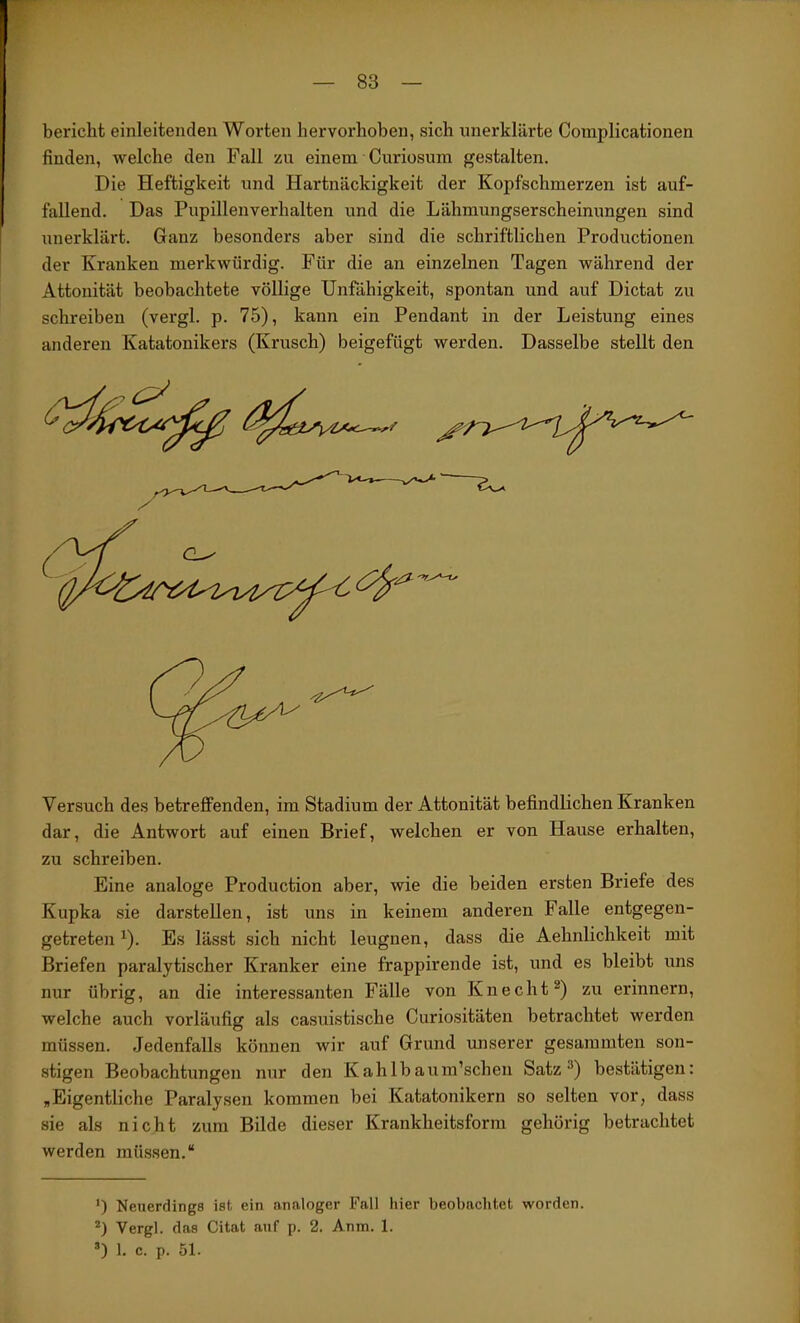 — 83 —
bericht einleitenden Worten hervorhoben, sich unerklärte Complicationen
finden, welche den Fall zu einem Curiosum gestalten.
Die Heftigkeit und Hartnäckigkeit der Kopfschmerzen ist auf-
fallend. Das Pupillenverhalten und die Lähmungserscheinungen sind
unerklärt. Ganz besonders aber sind die schriftlichen Productionen
der Kranken merkwürdig. Für die an einzelnen Tagen während der
Attonität beobachtete völlige Unfähigkeit, spontan und auf Dictat zu
schreiben (vergl. p. 75), kann ein Pendant in der Leistung eines
anderen Katatonikers (Krusch) beigefügt werden. Dasselbe stellt den
Versuch des betreffenden, im Stadium der Attonität befindlichen Kranken
dar, die Antwort auf einen Brief, welchen er von Hause erhalten,
zu schreiben.
Eine analoge Production aber, wie die beiden ersten Briefe des
Kupka sie darstellen, ist uns in keinem anderen Falle entgegen-
getreten ¹). Es lässt sich nicht leugnen, dass die Aehnlichkeit mit
Briefen paralytischer Kranker eine frappirende ist, und es bleibt uns
nur übrig, an die interessanten Fälle von Knecht ²) zu erinnern,
welche auch vorläufig als casuistische Curiositäten betrachtet werden
müssen. Jedenfalls können wir auf Grund unserer gesammten son-
stigen Beobachtungen nur den Kahlbaum'schen Satz ³) bestätigen:
„Eigentliche Paralysen kommen bei Katatonikern so selten vor, dass
sie als nicht zum Bilde dieser Krankheitsform gehörig betrachtet
werden müssen.“
¹) Neuerdings ist ein analoger Fall hier beobachtet worden.
²) Vergl. das Citat auf p. 2. Anm. 1.
³) l. c. p. 51.